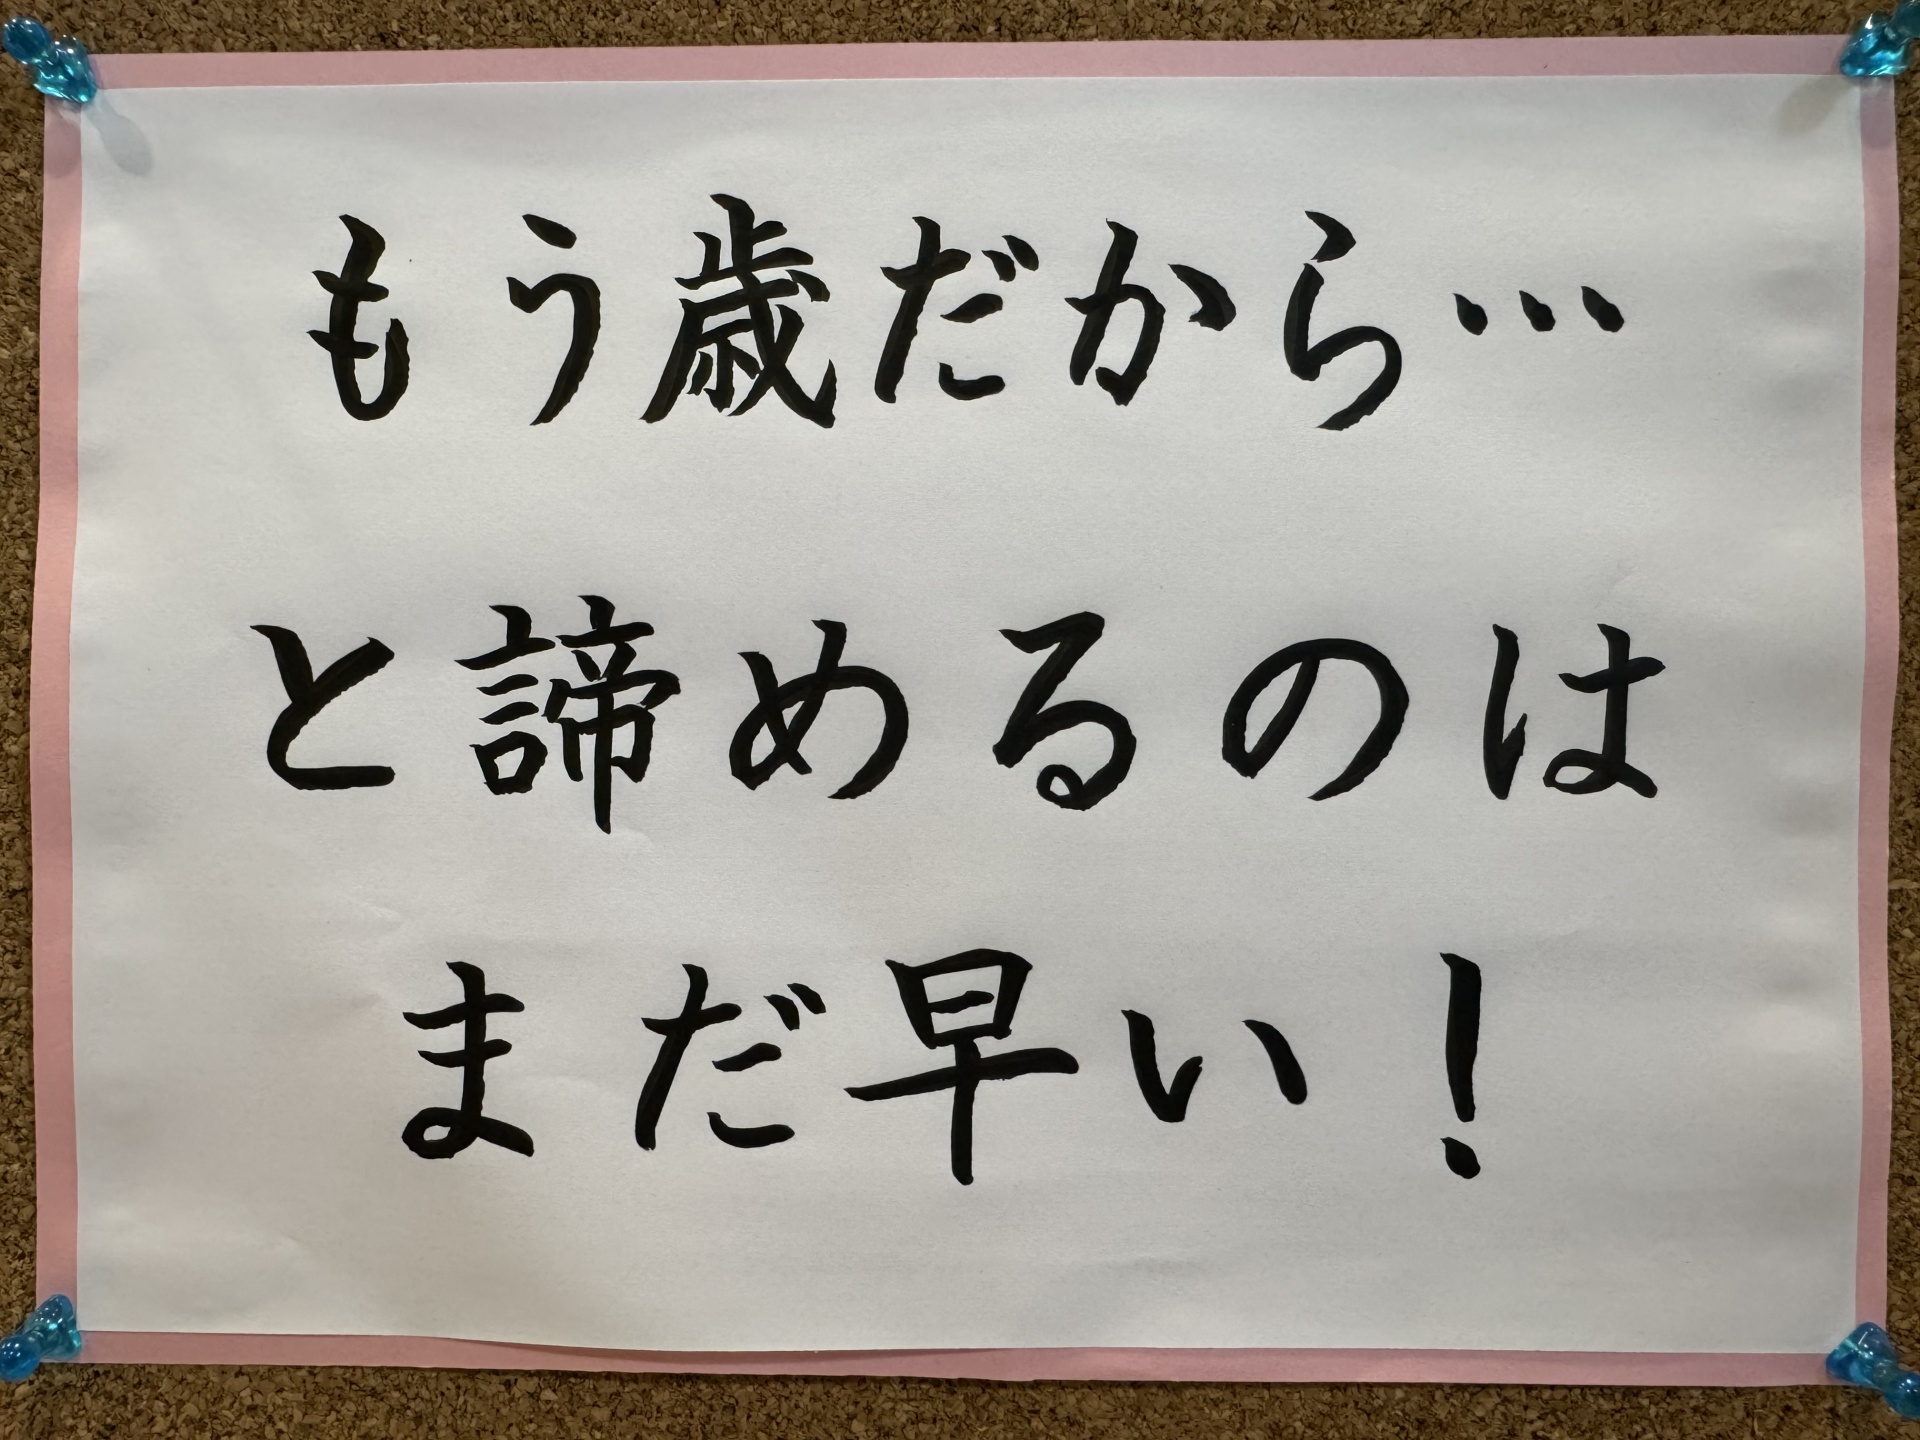 もう歳だから…
と諦めるのは
まだ早い!